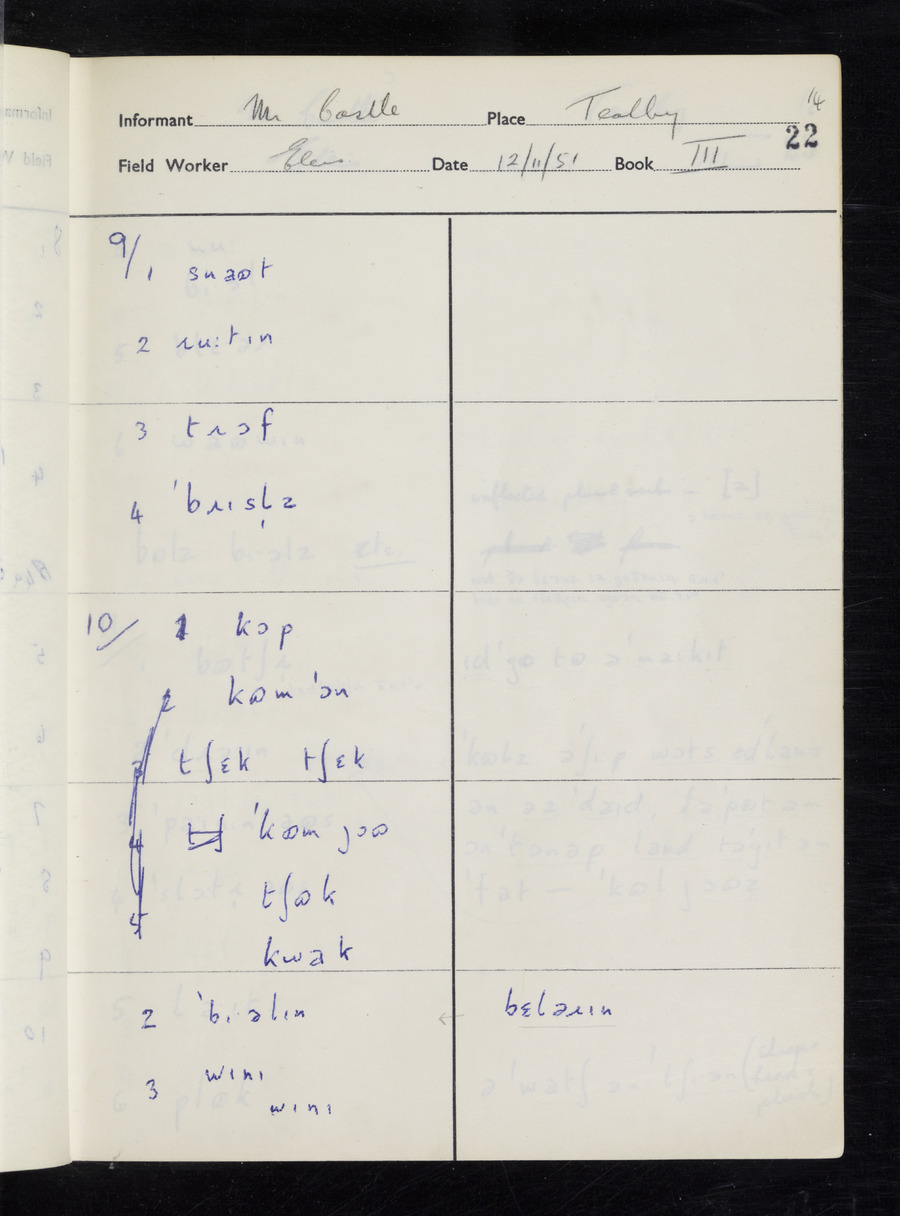 14
Informant Mr Castle Place Tealby
22
Field Worker Ellis Date 12/11/51 Book III
9/1 snaʊt
2 ɹuːtɪn
3 tɹɔf
4 ˈbɹɪsl̩z
10/ 1 kɔp
2 kʊmˈɔn
3 tʃɛk tʃɛk
4 ˈkʊm jɔʊ
tʃʊk
5 kwak
2 ˈbɪəlɪn ← bɛlərɪn
3 wɪnɪ
wɪnɪ